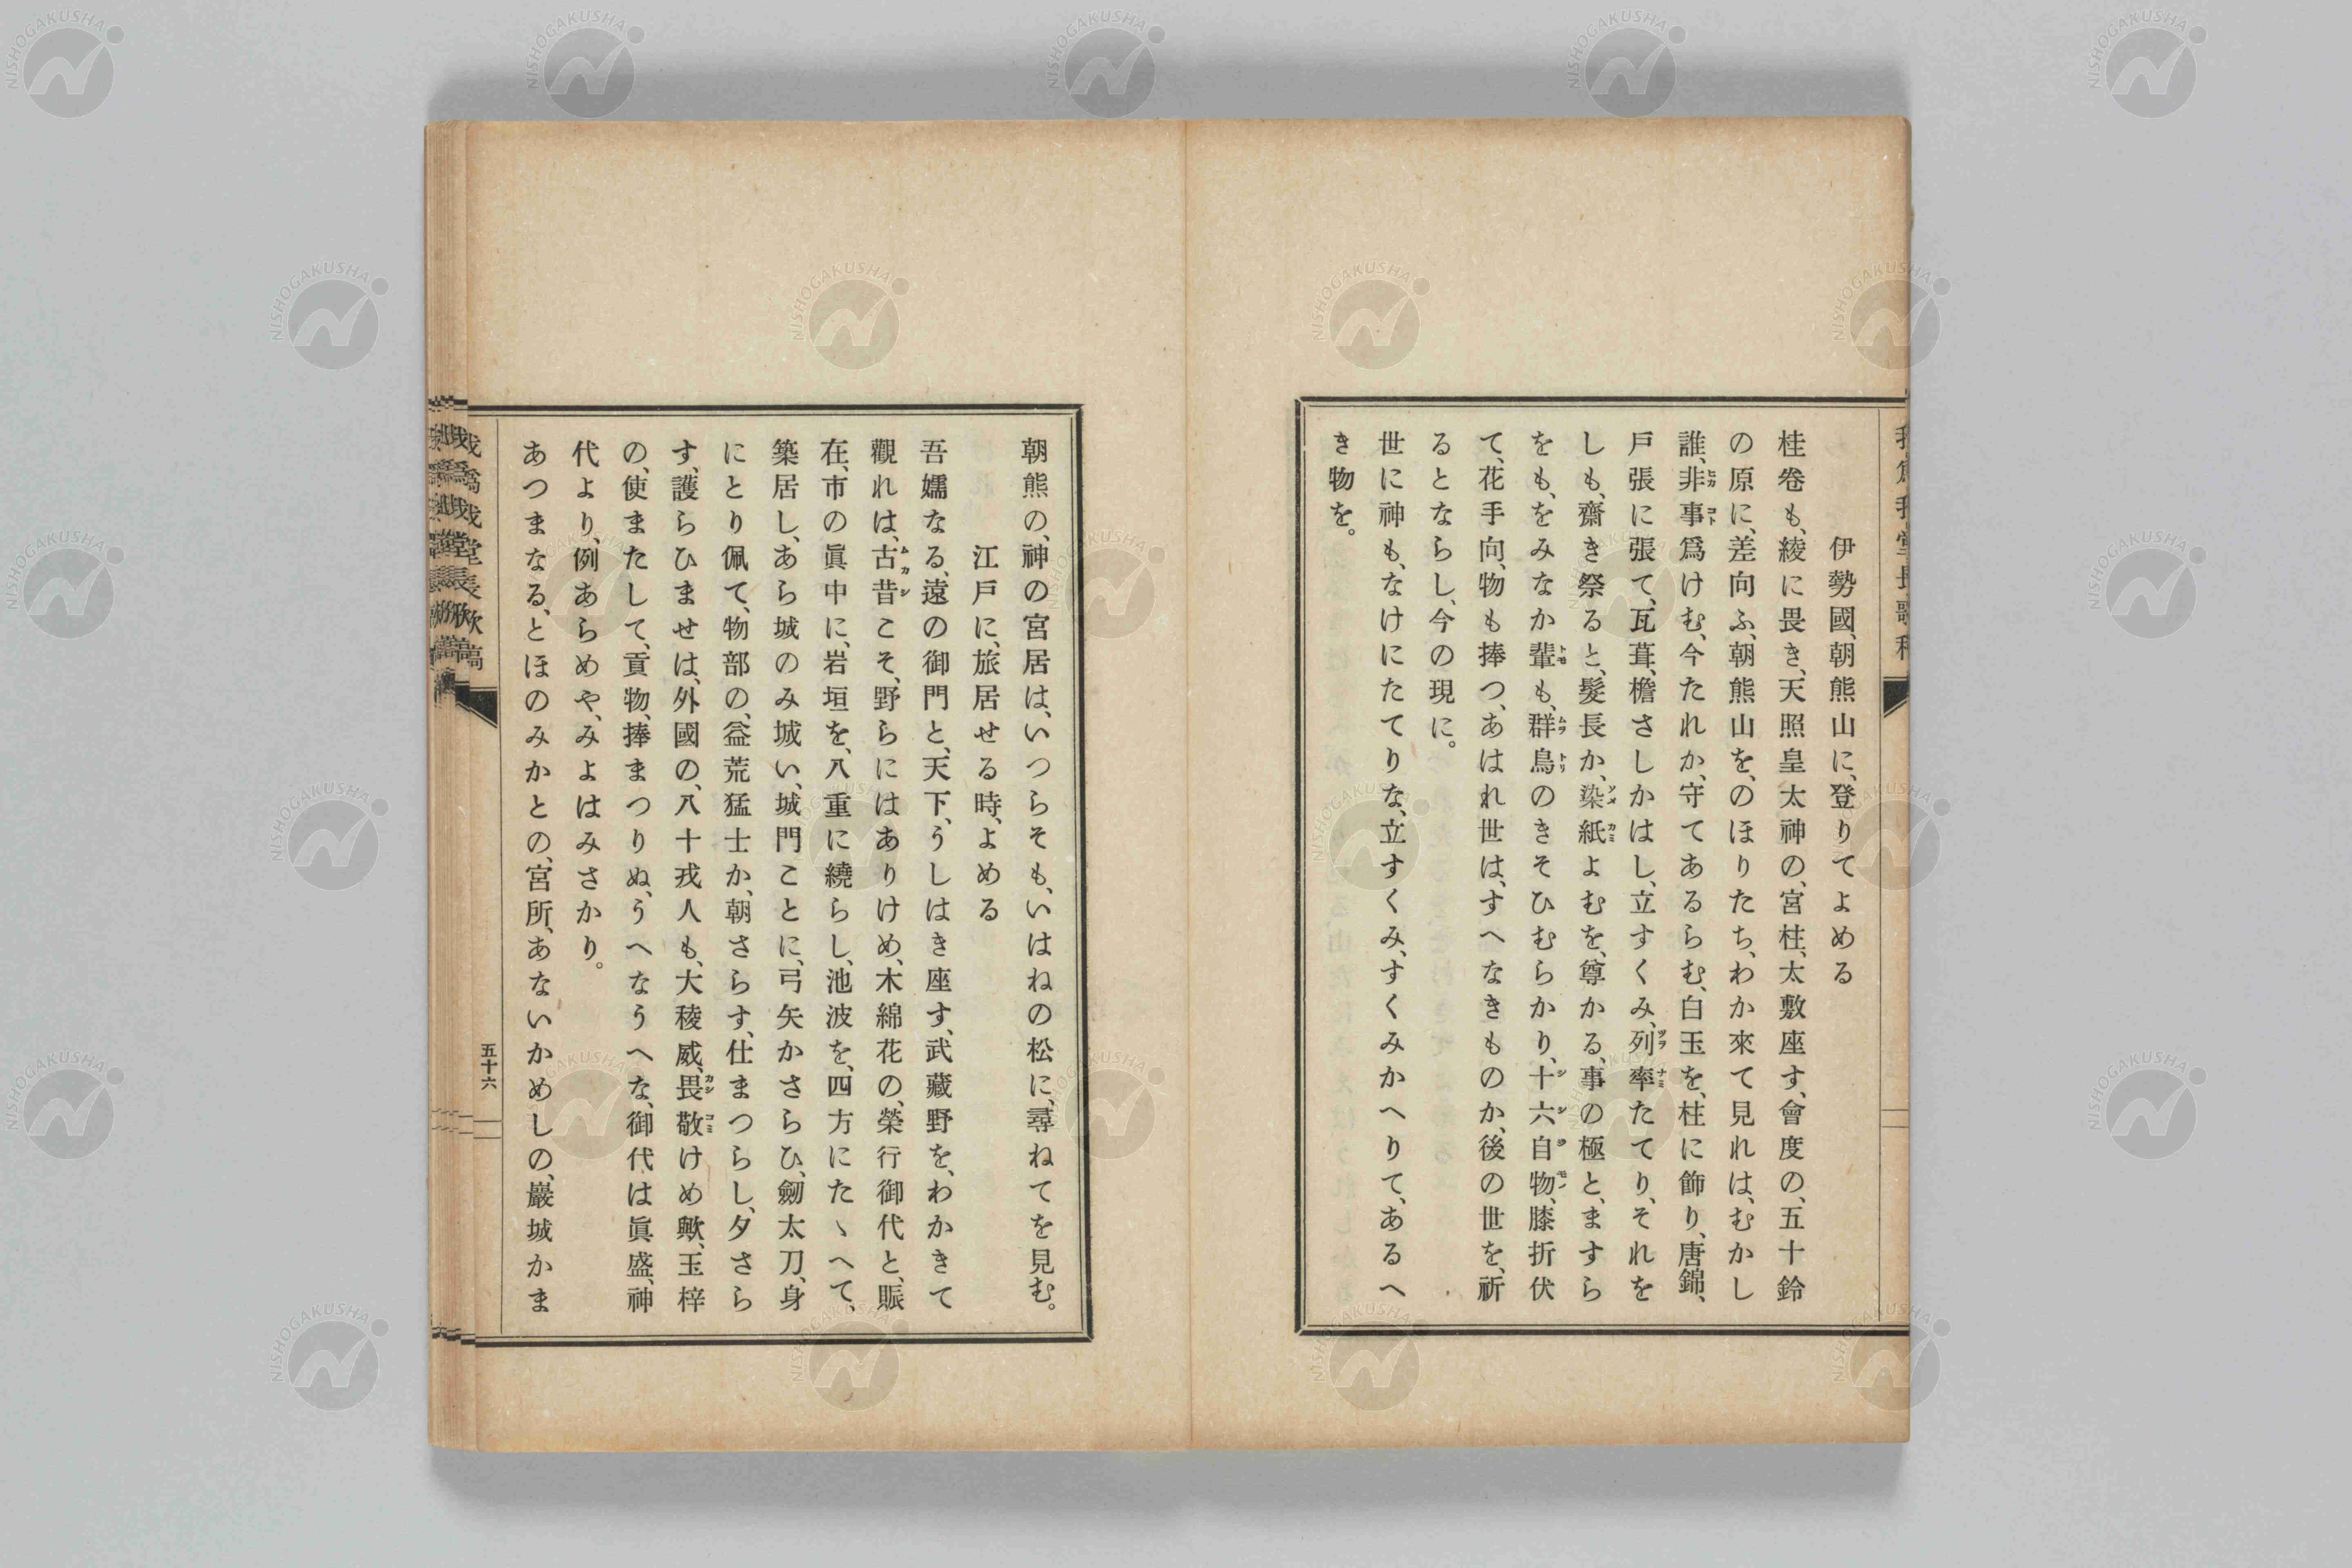 伊勢國、朝熊山に、登りてよめる
桂卷も、綾に畏き、天照皇太神の、宮柱、太敷座す、會度の、五十鈴
の原に、差向ふ、朝熊山を、のほりたち、わか來て見れは、むかし
誰、非事爲けむ、今たれか、守てあるらむ、白玉を、柱に飾り、唐錦、
戸張に張て、瓦葺、檐さしかはし、立すくみ、列率たてり、それを
しも、齋き祭ると、髮長か、染紙よむを、尊かる、事の極と、ますら
をも、をみなか輩も、群鳥のきそひむらかり、十六自物、膝折伏
て、花手向、物も捧つ、あはれ世は、すへなきものか、後の世を、祈
るとならし、今の現に。
世に神も、なけにたてりな、立すくみ、すくみかへりて、あるへ
き物を。
朝熊の、神の宮居は、いつらそも、いはねの松に、尋ねてを見む。
江戸に、旅居せる時、よめる
吾嬬なる、遠の御門と、天下、うしはき座す、武藏野を、わかきて
觀れは、古昔こそ、野らにはありけめ、木綿花の、榮行御代と、賑
在、市の眞中に、岩垣を、八重に繞らし、池波を、四方にたゝへて、
築居し、あら城のみ城い、城門ことに、弓矢かさらひ、劒太刀、身
にとり佩て、物部の、益荒猛士か、朝さらす、仕まつらし、夕さら
す、護らひませは、外國の、八十戎人も、大稜威、畏敬けめ歟、玉梓
の、使またして、貢物、捧まつりぬ、うへなうへな、御代は眞盛、神
代より、例あらめや、みよはみさかり。
あつまなる、とほのみかとの、宮所、あないかめしの、巖城かま
五十六